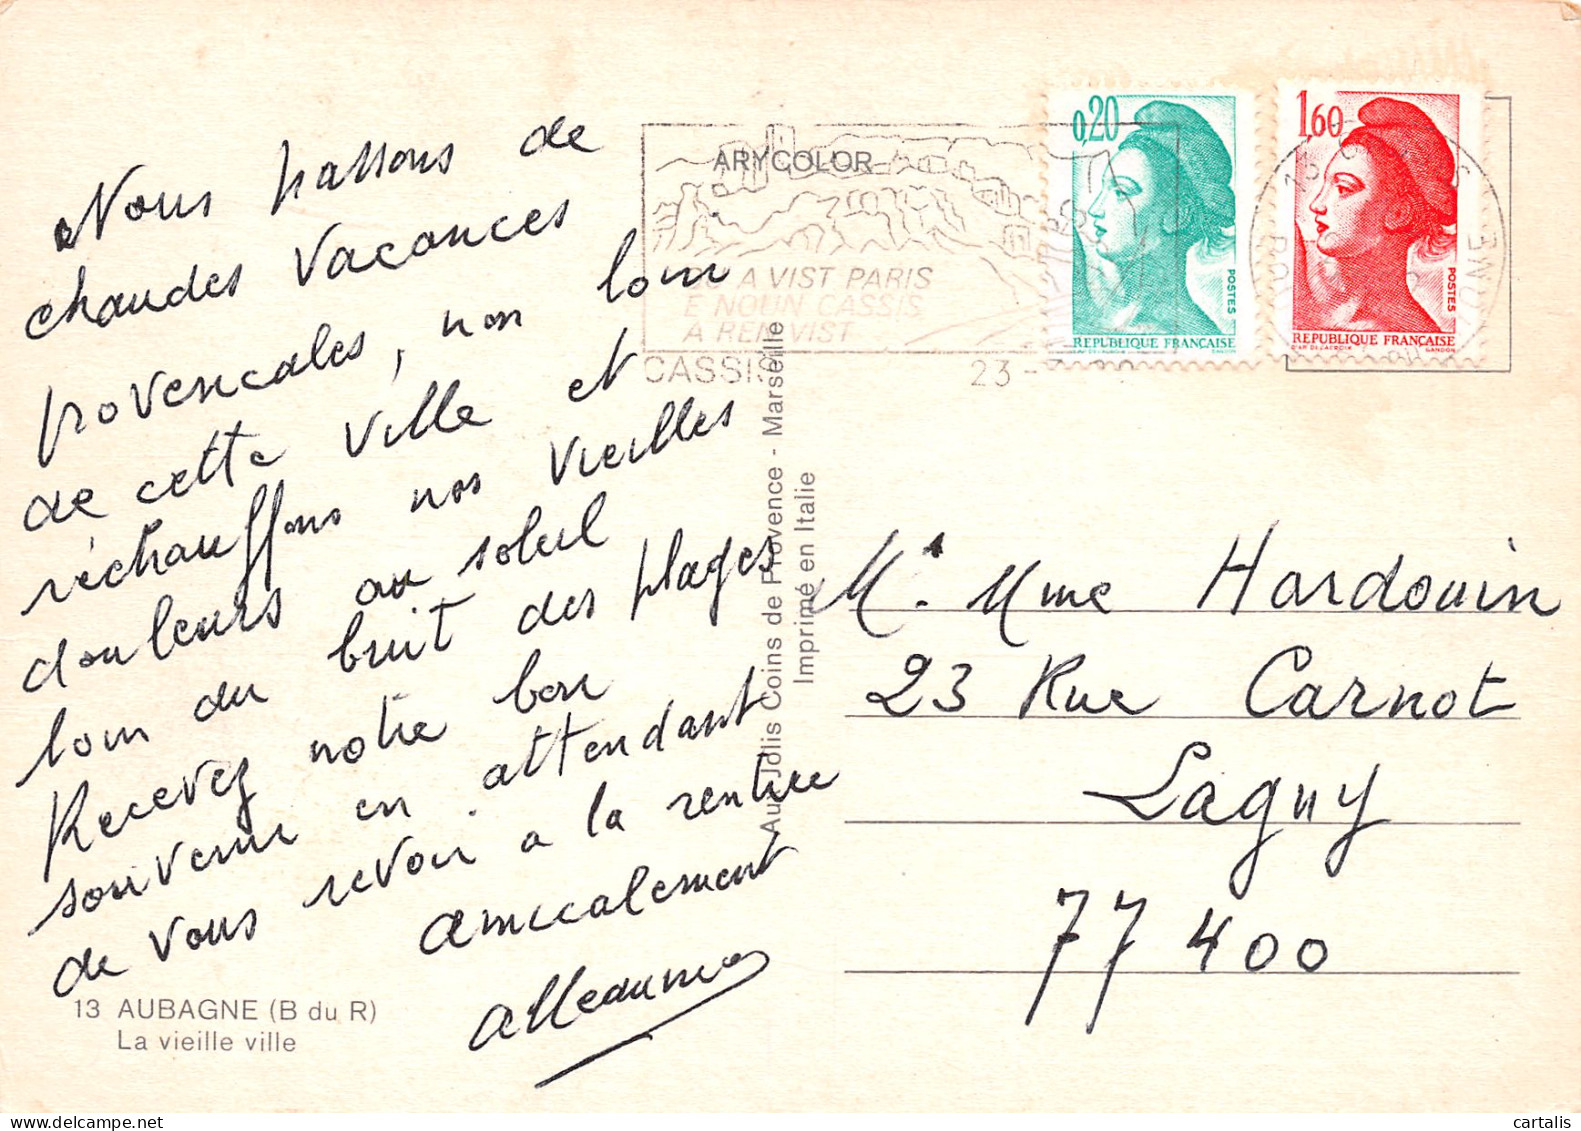 Nous passons de
chaudes vacances
provencales, non loin
de cette ville et
réchauffons nos vieilles
douleurs au soleil
loin du bruit des plages
Recevez notre bon
souvenir en attendant
de vous revoir a la rentrée
amicalement
13 AUBAGNE (B du R)
La vieille ville
ARYCOLOR
A VIST PARIS
E NOUN CASSIS
A REN VIST
CASSIS
23 -
Aux Jolis Coins de Provence - Marseille
Imprimé en Italie
0,20
POSTES
REPUBLIQUE FRANÇAISE
1,60
POSTES
REPUBLIQUE FRANÇAISE
D'AP. DELACROIX GANDON
Mr. Mme Hardouin
23 Rue Carnot
Lagny
77 400
cartalis